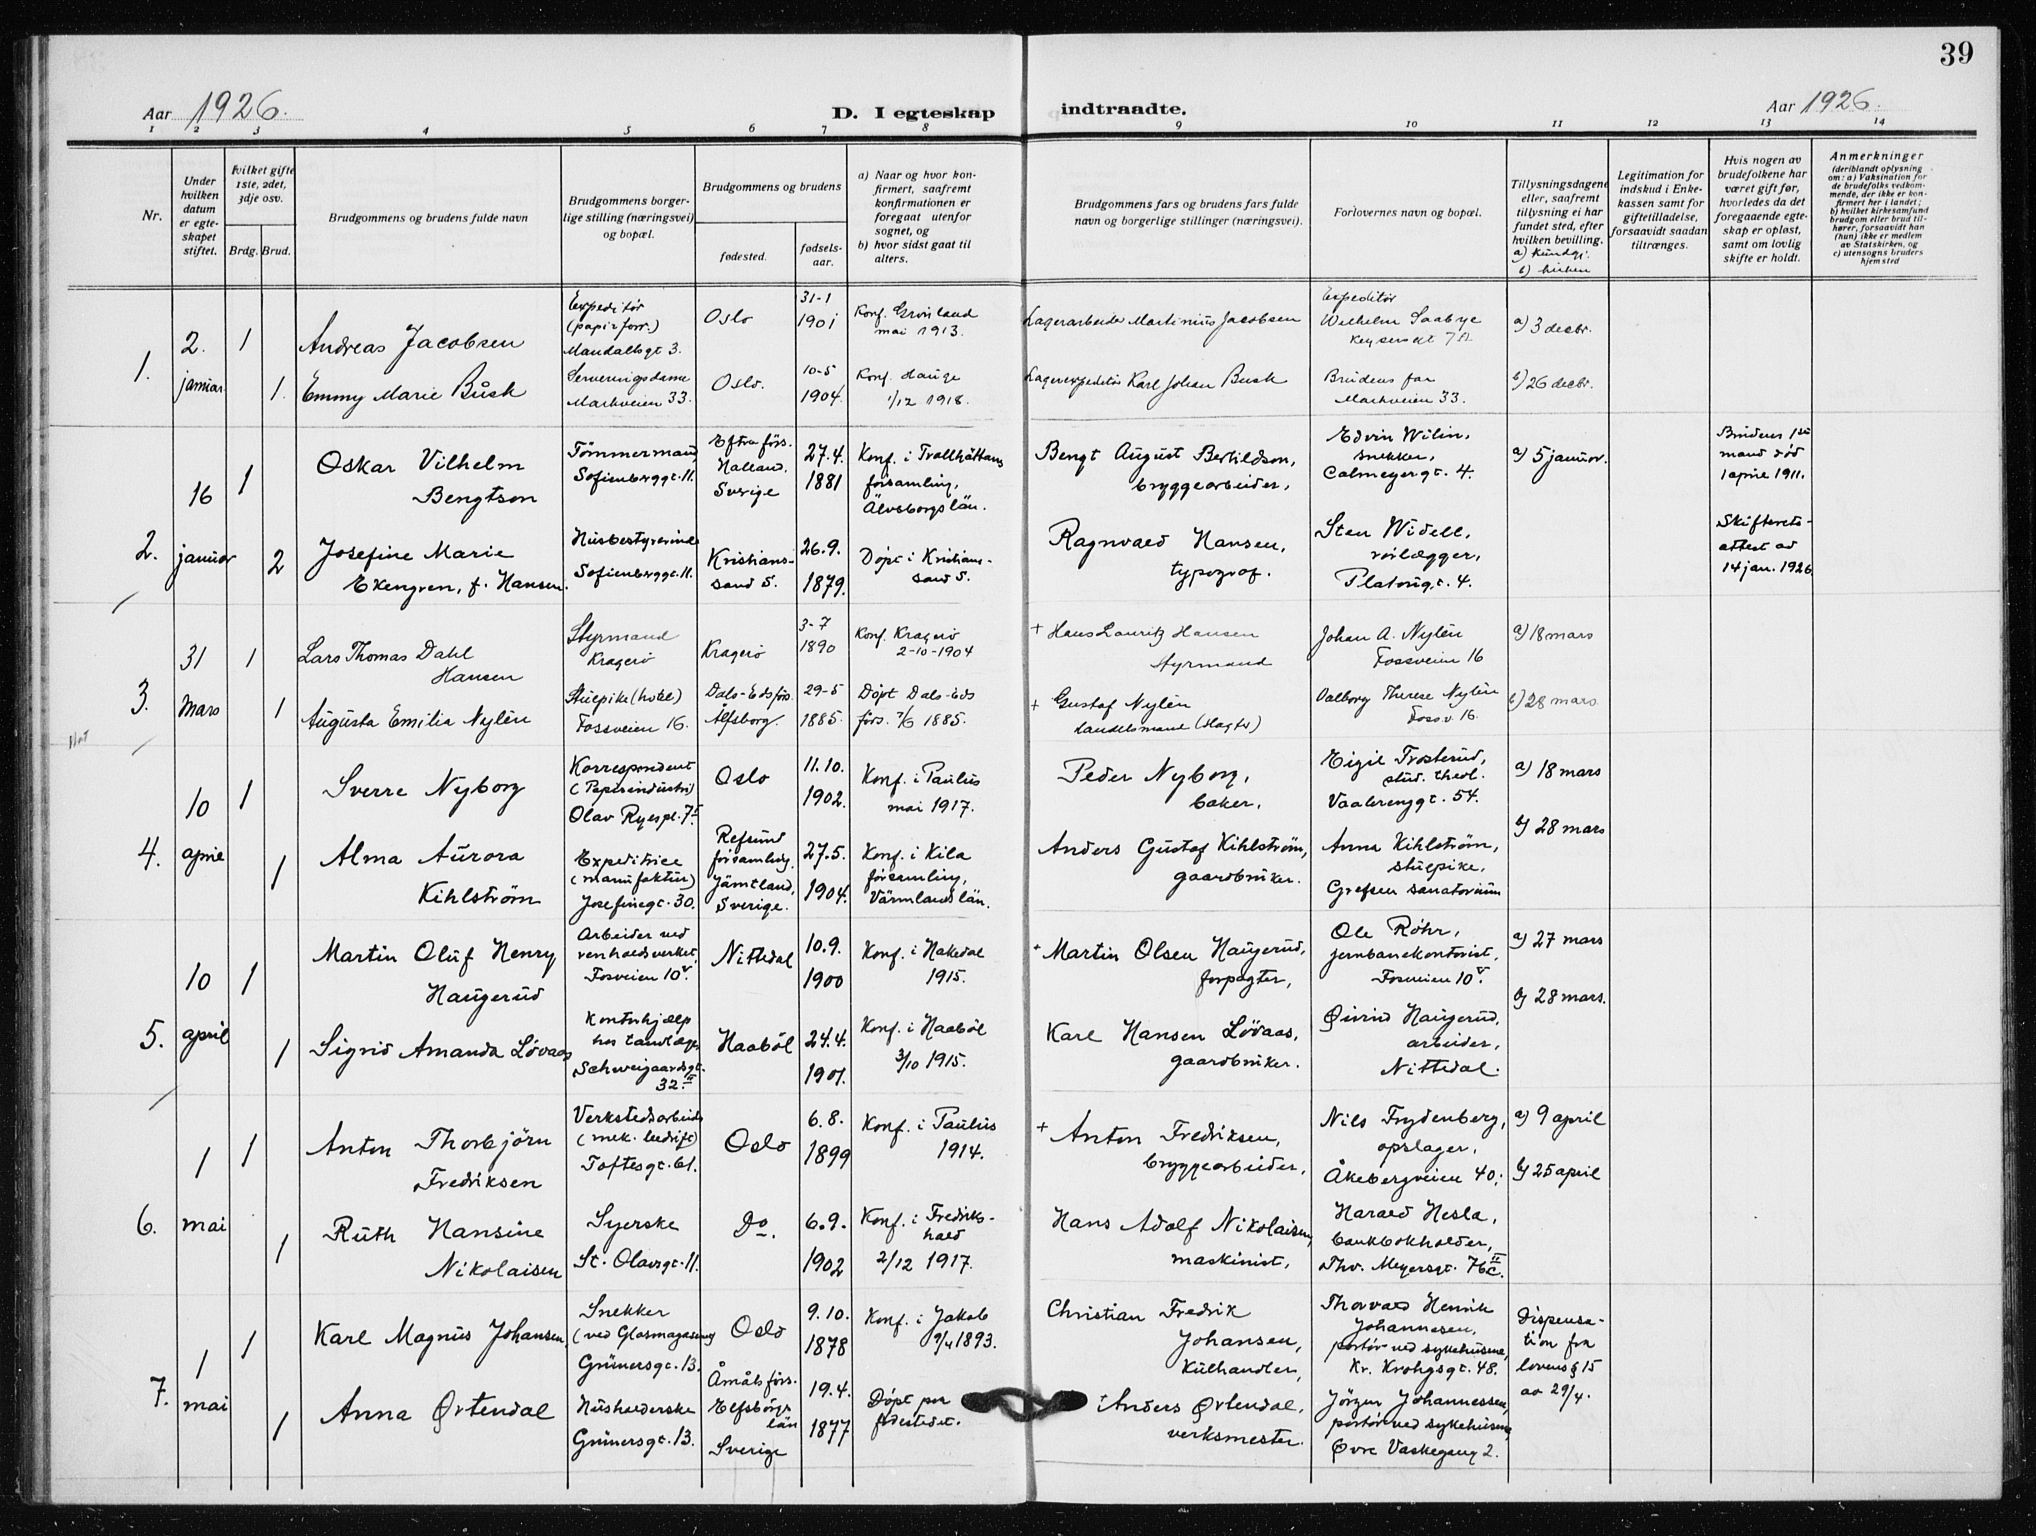 39
Aar 1926.
D. I egteskap indtraadte.
Aar 1926.
1 2 3 4 5 6 7 8 9 10 11 12 13 14
Nr.
Under hvilken datum er egteskapet stiftet.
Hvilket gifte 1ste, 2det, 3dje osv.
Brdg. Brud.
Brudgommens og brudens fulde navn
Brudgommens borgerlige stilling (næringsvei) og bopæl.
Brudgommens og brudens
fødested.
fødselsaar.
a) Naar og hvor konfirmert, saafremt konfirmationen er foregaat utenfor sognet, og
b) hvor sidst gaat til alters.
Brudgommens fars og brudens fars fulde navn og borgerlige stillinger (næringsvei).
Forlovernes navn og bopæl.
Tillysningsdagene eller, saafremt tillysning ei har fundet sted, efter hvilken bevilling.
a) Kundgj.
b) kirken
Legitimation for indskud i Enkekassen samt for giftetilladelse, forsaavidt saadan tiltrænges.
Hvis nogen av brudefolkene har været gift før, hvorledes da det foregaaende egteskap er opløst, samt om lovlig skifte er holdt.
Anmerkninger
(deriblandt oplysning om: a) Vaksination for de brudefolks vedkommende, der ikke er konfirmert her i landet; b) hvilket kirkesamfund brudgom eller brud tilhører, forsaavidt han (hun) ikke er medlem av Statskirken, og c) utensogns bruders hjemsted
1.
2.
januar
1
Andreas Jacobsen
Expeditør
(papirforr.)
Mandallsgt 3.
Oslo
31-1
1901
Konf. Grønland
mai 1913.
Lagerarbeider Martinius Jacobsen
Expeditør
Wilhelm Saabye
Keysersgt 7 A.
a) 3 decbr.
1.
Emmy Marie Busk
Serveringsdame
Markveien 33.
Oslo.
10-5
1904.
Konf. Hauge
1/12 1918.
Lagerexpeditør Karl Johan Busk
Brudens far
Markveien 33.
b) 26 decbr.
2.
16
januar
1
Oskar Vilhelm
Bengtson
Tömmermand
Sofienberggt. 11.
Eftra förs.
Halland,
Sverige
27.4.
1881
Konf. i Trollhättans
församling,
Älvsborgs län.
Bengt August Bertildson,
bryggearbeider,
Edvin Wilin,
snekker,
Calmeyergt. 4.
a) 5 januar.
Brudens 1ste
mand död
1 april 1911.
2
Josefine Marie
Ekengren, f. Hansen.
Husbestyrerinde
Sofienberggt. 11.
Kristianssand S.
26.9.
1879.
Döpt i Kristianssand S.
Ragnvald Hansen,
typograf.
Sten Widell,
rörlægger,
Platousgt. 4.
Skifterets-
attest av
14 jan. 1926.
3.
31
Mars
1
Lars Thomas Dahl
Hansen
Styrmand
Kragerø
Kragerø
3-7
1890
Konf. Kragerø
2-10-1904
+ Hans Lauritz Hansen
Styrmand
Johan A. Nylén
Fossveien 16
a) 18 mars
1
Augusta Emilia Nylén
Stuepike (hotel)
Fossveien 16.
Dals-Eds förs.
Älfsborg.
29-5
1885.
Döpt Dals-Eds
förs. 7/6 1885.
+ Gustaf Nylén
Handelsmand
Fossv. 16.
b) 28 mars
4.
10
april
1
Sverre Nyborg
Korrespondent
(Papirindustri)
Olav Ryespl. 7
Oslo
11.10.
1902.
Konf. i Paulus
mai 1917.
Peder Nyborg,
baker,
Eigil Trosterud,
stud. theol.
Vaalerenggt. 54.
a) 18 mars
1
Alma Aurora
Kihlström
Expeditrice
(manufaktur)
Josefinegt. 30.
Refsund
församling.
Jämtland,
Sverige.
27.5.
1904.
Konf. i Kila
församling,
Värmlands län.
Anders Gustaf Kihlström,
gaardbruker.
Anna Kihlström,
stuepike,
Grefsen sanatorium
b) 28 mars
5.
10
april
1
Martin Oluf Henry
Haugerud
Arbeider ved
renholdsverket,
Fosveien 10 V.
Nittedal
10.9.
1900
Konf. i Hakedal
1915.
+ Martin Olsen Haugerud,
forpagter,
Ole Röhr,
jernbanekontorist,
Fosveien 10 V.
a) 27 mars
1
Sigrid Amanda Lövaas
Kontorhjælp
hos tandlæge
Schweigaardsgt.
32 II
Haaböl
24.4.
1901.
Konf. i Haaböl
3/10 1915.
Karl Hansen Lövaas,
gaardbruker.
Øivind Haugerud,
arbeider,
Nittedal.
b) 28 mars.
6.
1
mai
1
Anton Thorbjörn
Fredriksen
Verkstedsarbeider
(mek. bedrift)
Toftesgt. 61.
Oslo
6.8.
1899
Konf. i Paulus
1914.
+ Anton Fredriksen,
bryggearbeider,
Nils Frydenberg,
opslager,
Åkebergveien 40;
a) 9 april
1
Ruth Hansine
Nikolaisen
Syerske
St. Olavsgt. 11.
Do.
6.9.
1902
Konf. i Fredrikshald
2/12 1917.
Hans Adolf Nikolaisen,
maskinist,
Harald Hesla,
bankbokholder,
Thv. Meyersgt. 76 c. II
b) 25 april
7.
1
mai
1
Karl Magnus Johansen,
Snekker
(ved Glasmagasinet)
Grünersgt. 13.
Oslo
9.10.
1878
Konf. i Jakob
9/4 1893.
Christian Fredrik
Johansen,
kulhandler,
Thorvald Henrik
Johannesen,
portör ved sykehusene,
Kr. Krohgsgt. 48.
Dispensation fra
lovens § 15
av 29/4.
1
Anna Örtendal
Husholderske
Grünersgt. 13.
Åmåls förs.
Elfsborgs
län
Sverige
19.4.
1877
Döpt paa
födestedet.
+ Anders Örtendal,
verksmester.
Jörgen Johannessen,
portör ved sykehusene
Øvre Vaskegang 2.